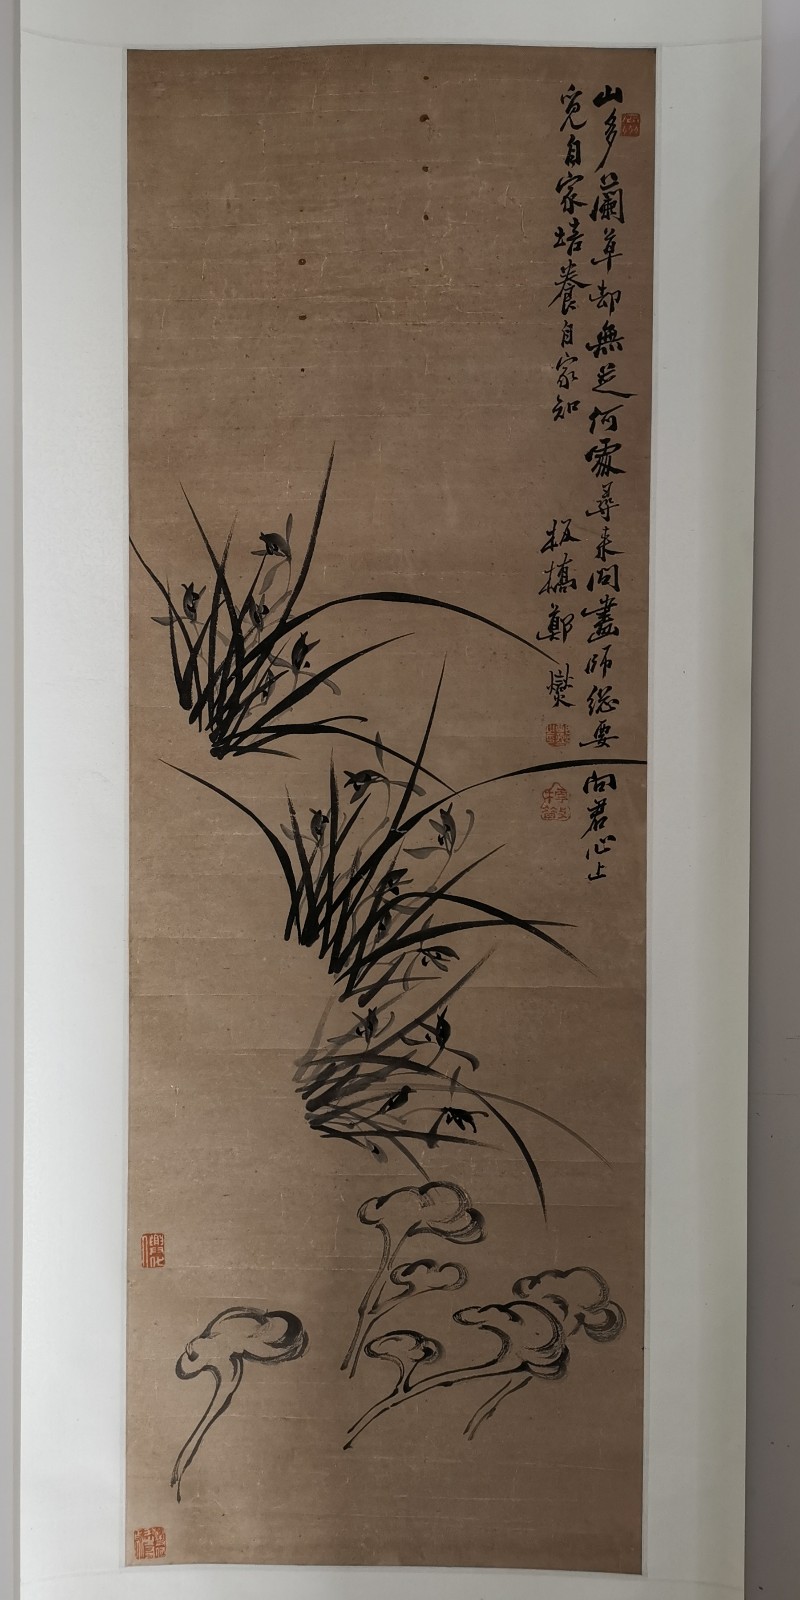 山多蘭草却無芝何處尋來问畫師緫要向君心上
覓自家培養自家知
板橋鄭燮